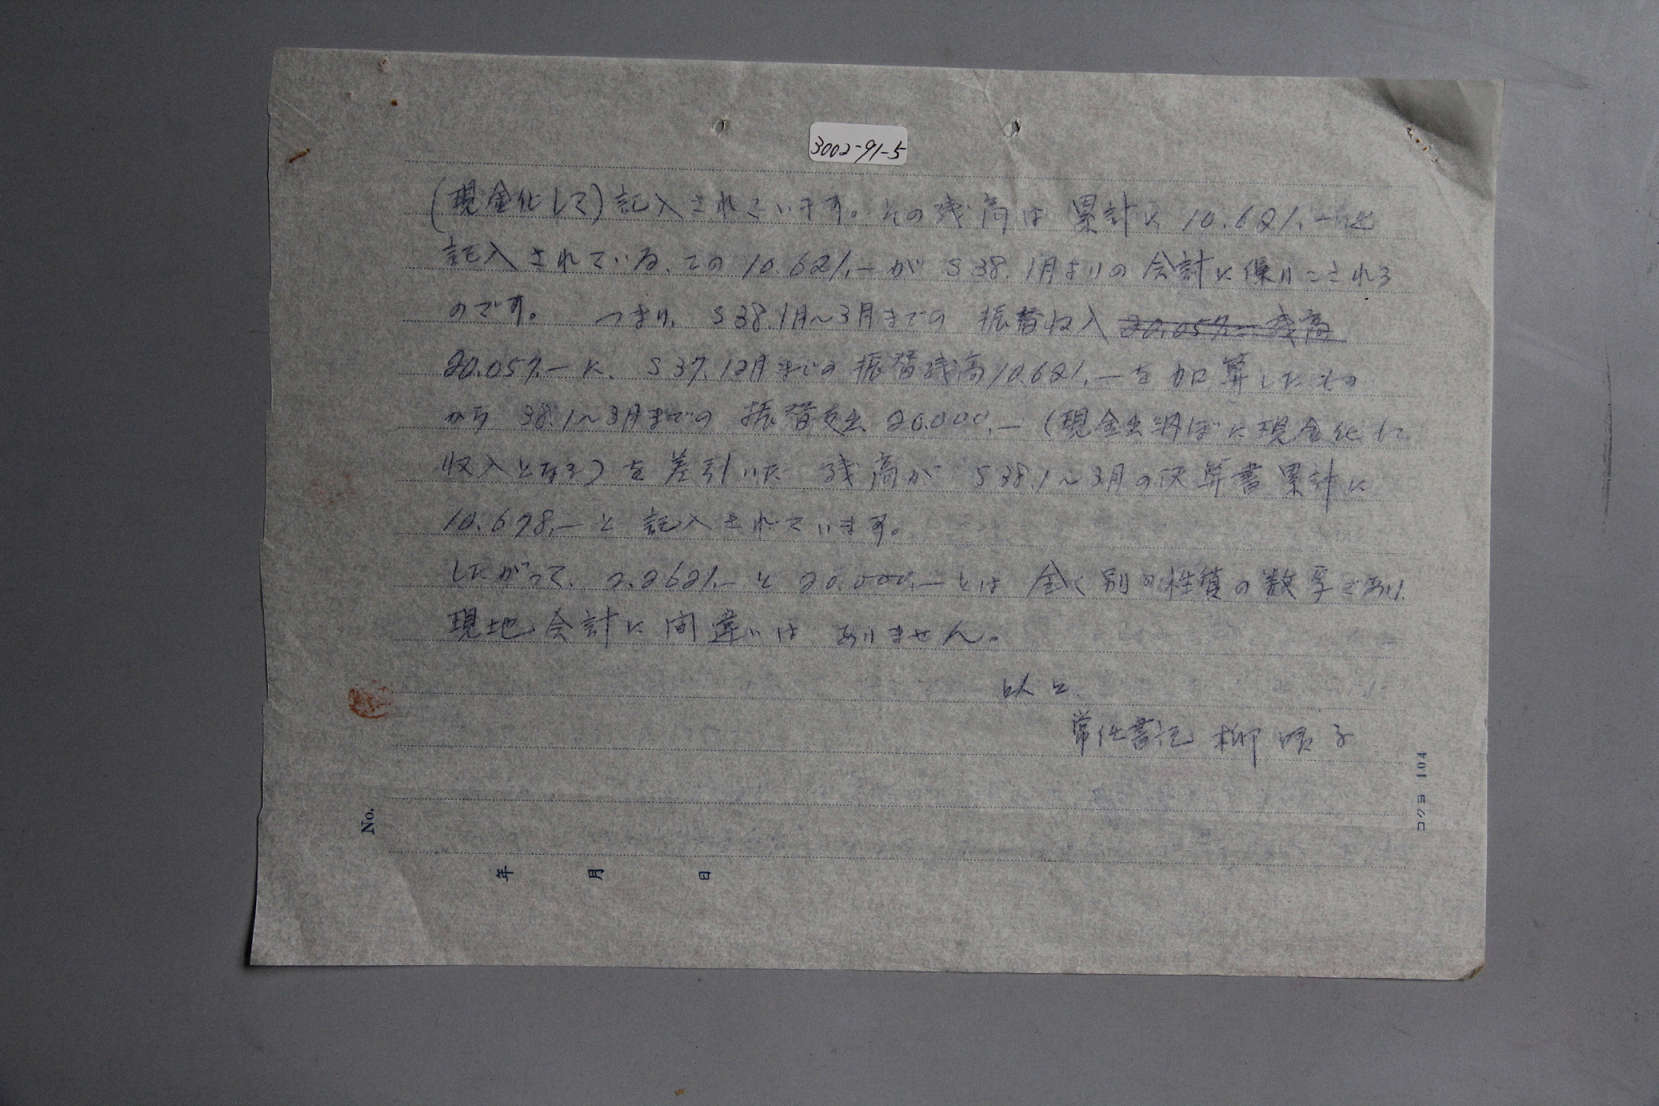 3002-91-5
(現金化して)記入されています。その残高は 累計に 10.621.-と
記入されている、この 10.621.-が S38.1月よりの 会計に繰りこされる
のです。 つまり、S38.1月〜3月までの 振替収入 20.057.-残高
20.057.-に、S37.12月までの振替残高10.621.-を加算したもの
から 38.1〜3月までの 振替支出 20.000.-(現金出納ぼに現金化して
収入となる)を差引いた 残高が S38.1〜3月の決算書累計に
10.678.-と 記入されています。
したがって、2.2621.-と 20.000.-とは 全く別の性質の数字であり、
現地会計に間違いは ありません。
以上
常任書記 柳 子
No.
年 月 日
コクヨ 104